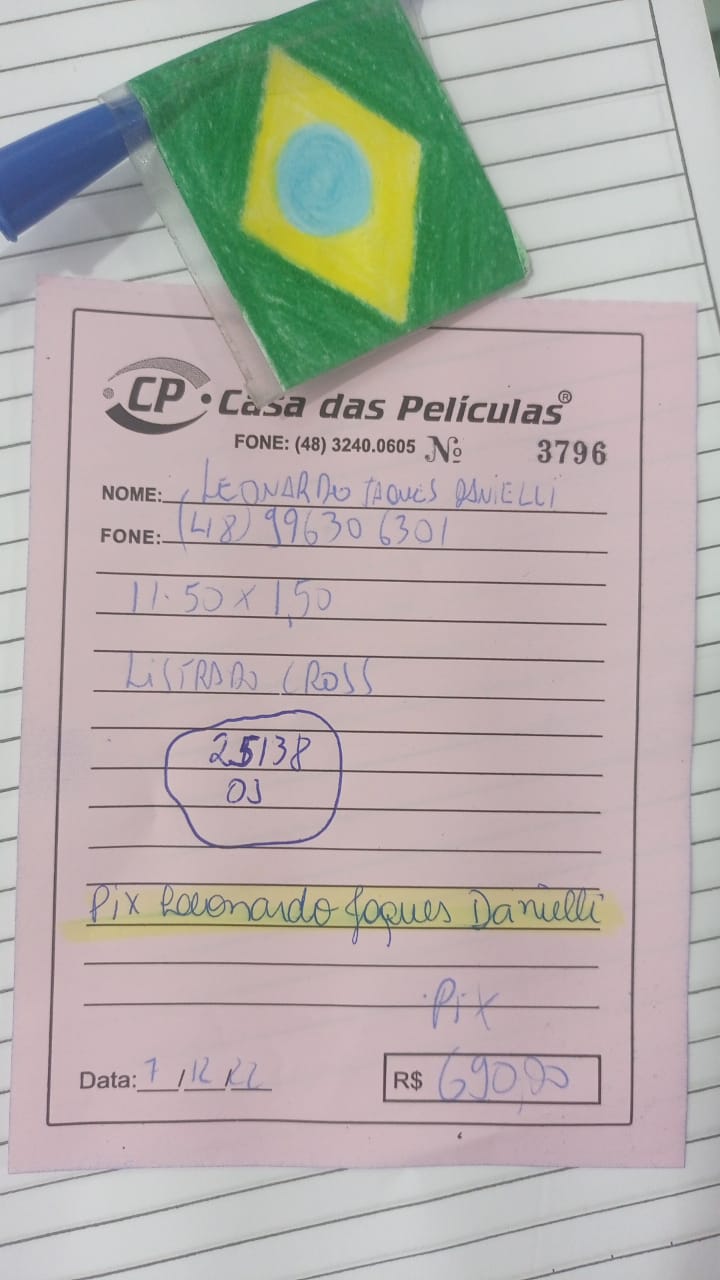 CP Casa das Películas®
FONE: (48) 3240.0605 Nº 3796
NOME: LEONARDO JAQUES DANIELLI
FONE: (48) 99630 6301
11.50 x 1,50
LISTRADO CROSS
25138
OS
Pix Leonardo Jaques Danielli
Pix
Data: 7/12/22 R$ 690,00